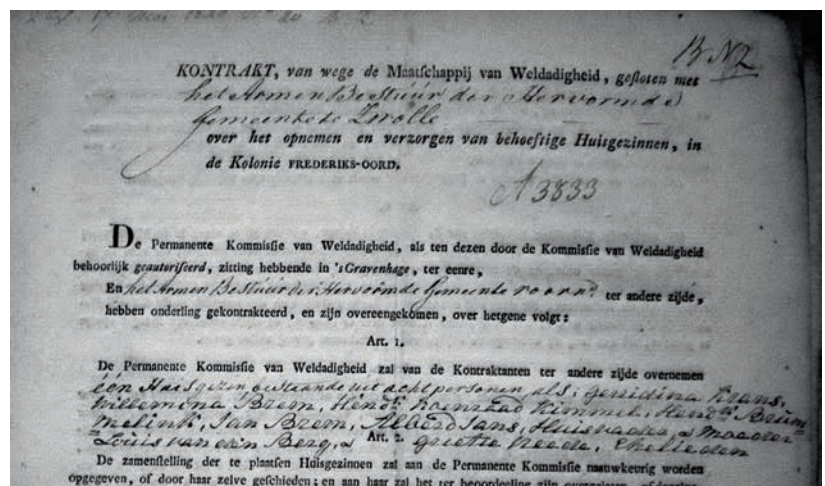 B N2
KONTRAKT, van wege de Maatschappij van Weldadigheid, gesloten met
het Armen Bestuur der Hervormde
Gemeente te Zwolle
over het opnemen en verzorgen van behoeftige Huisgezinnen, in
de Kolonie FREDERIKS-OORD.
A 3833
De Permanente Kommissie van Weldadigheid, als ten dezen door de Kommissie van Weldadigheid
behoorlijk geautoriseerd, zitting hebbende in 's Gravenhage, ter eenre,
En het Armen Bestuur der Hervormde Gemeente voornd. ter andere zijde,
hebben onderling gekontrakteerd, en zijn overeengekomen, over hetgene volgt:
Art. 1.
De Permanente Kommissie van Weldadigheid zal van de Kontraktanten ter andere zijde overnemen
één Huisgezin bestaande uit acht personen, als; Gerridina Krans,
Willemina Brem, Hendk. Koenraad Kimmel, Hendk. Brum=
melink, Jan Brem, Alberd Jans, Huisvader & Moeder
Louis van den Berg, & Grietje Vreede, Ehelieden
Art. 2.
De zamenstelling der te plaatsen Huisgezinnen zal aan de Permanente Kommissie naauwkeurig worden
opgegeven, of door haar zelve geschieden; en aan haar zal het ter beoordeeling zijn